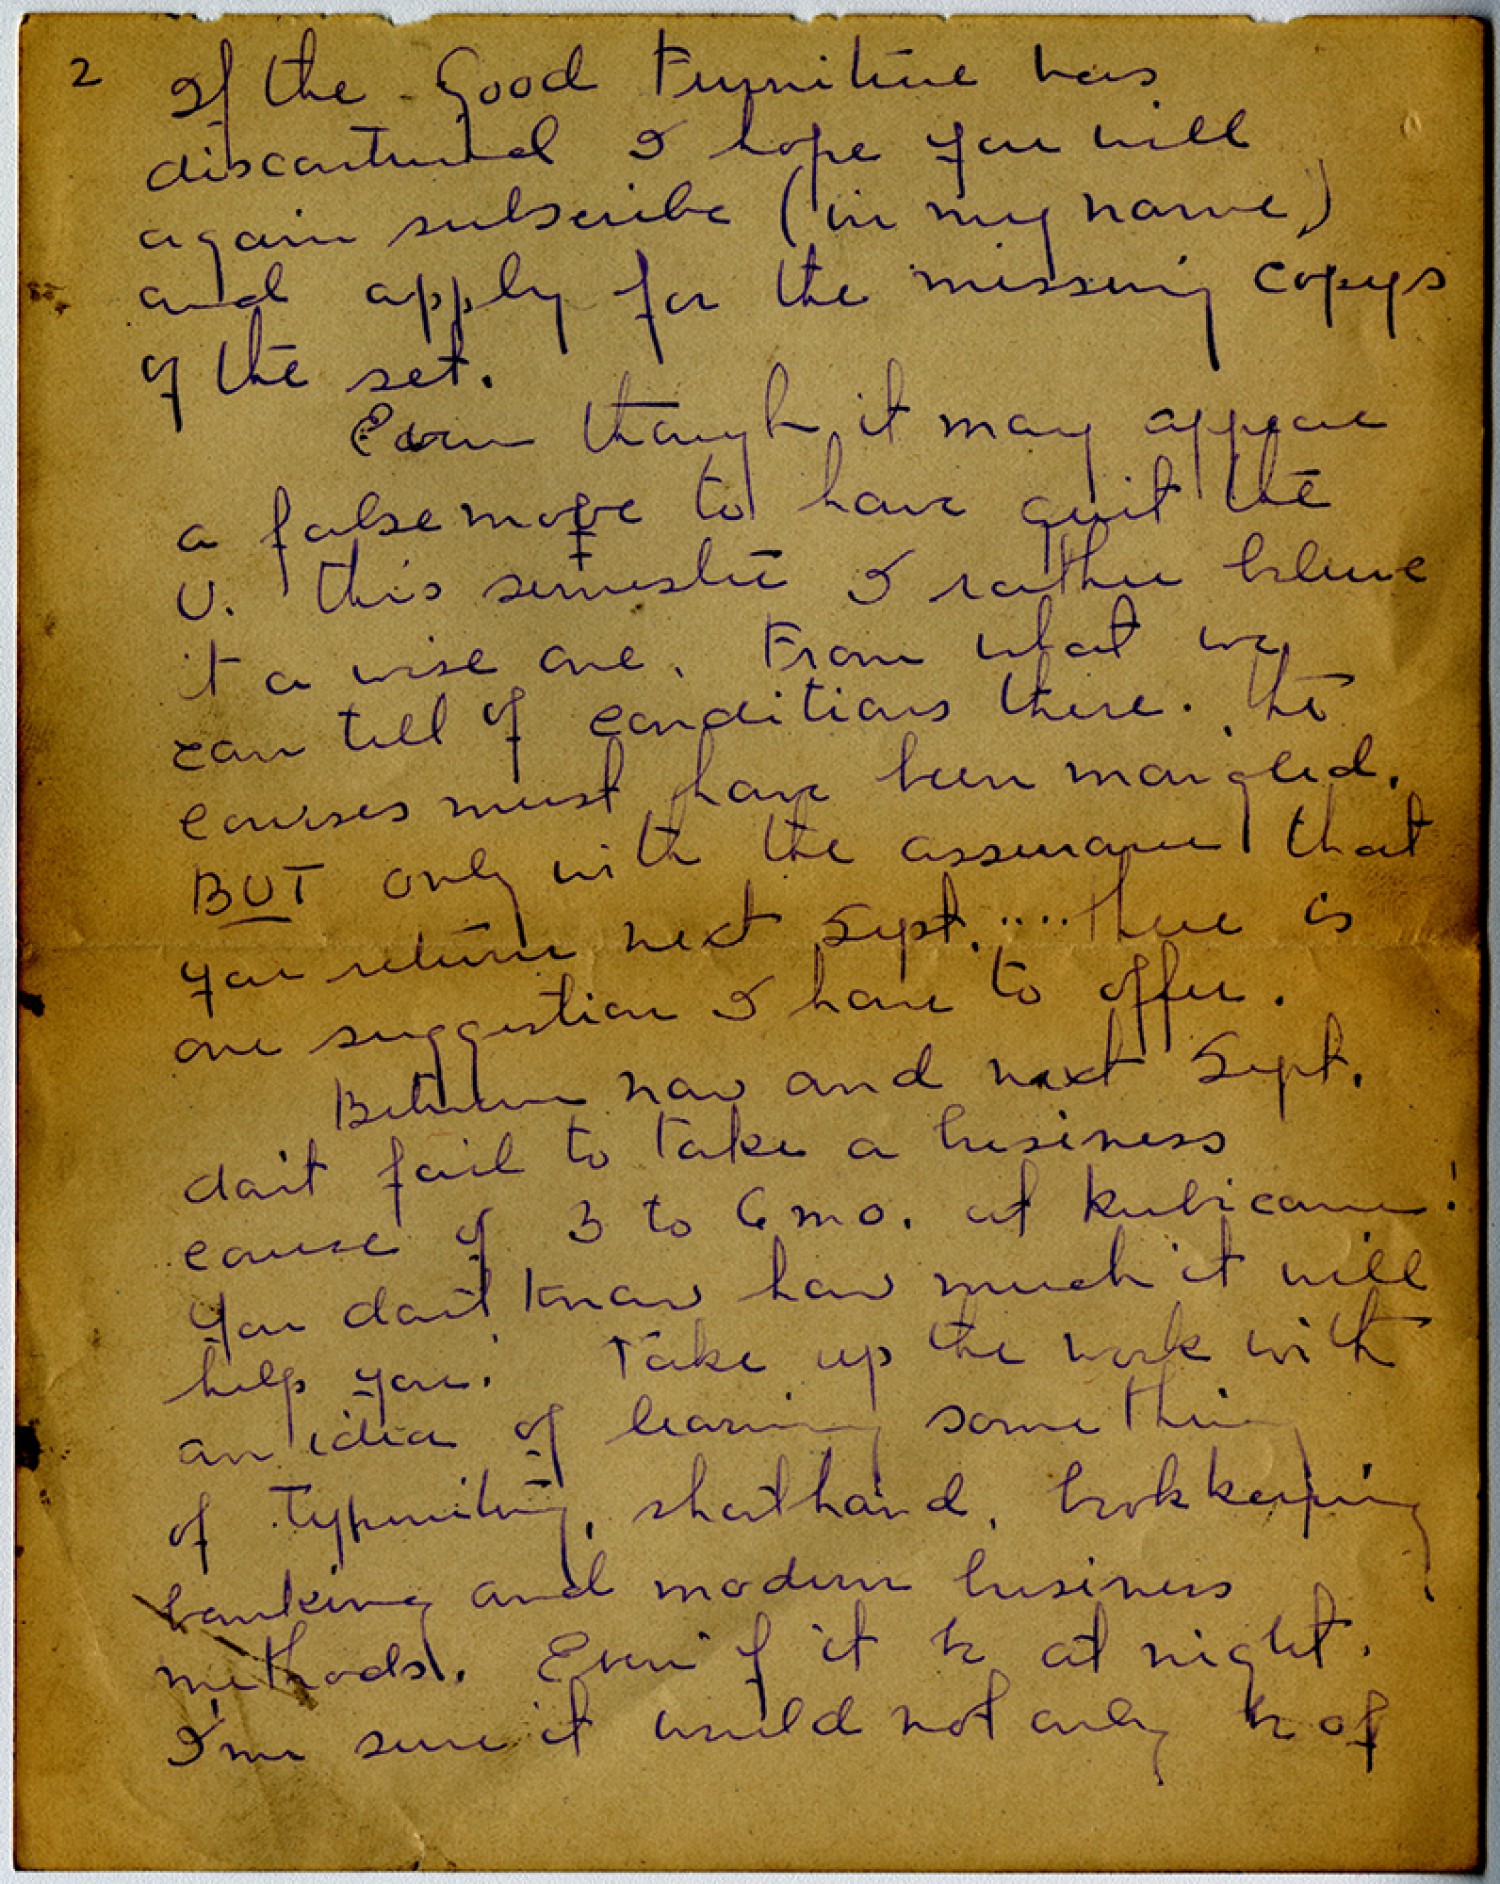 2 If the Good Furniture has
discontinued I hope you will
again subscribe (in my name)
and apply for the missing copys
of the set.
Even though it may appear
a false move to have quit the
U. this semester I rather believe
it a wise one. From what we
can tell of conditions there. the
courses must have been mangled.
BUT only with the assurance that
you return next Sept..... there is
one suggestion I have to offer.
Between now and next Sept.
don't fail to take a business
course of 3 to 6 mo. at Rubicam!
You don't know how much it will
help you! Take up the work with
an idea of learning something
of typewriting, shorthand, bookkeeping,
banking and modern business
methods. Even if it be at night.
I'm sure it would not only be of